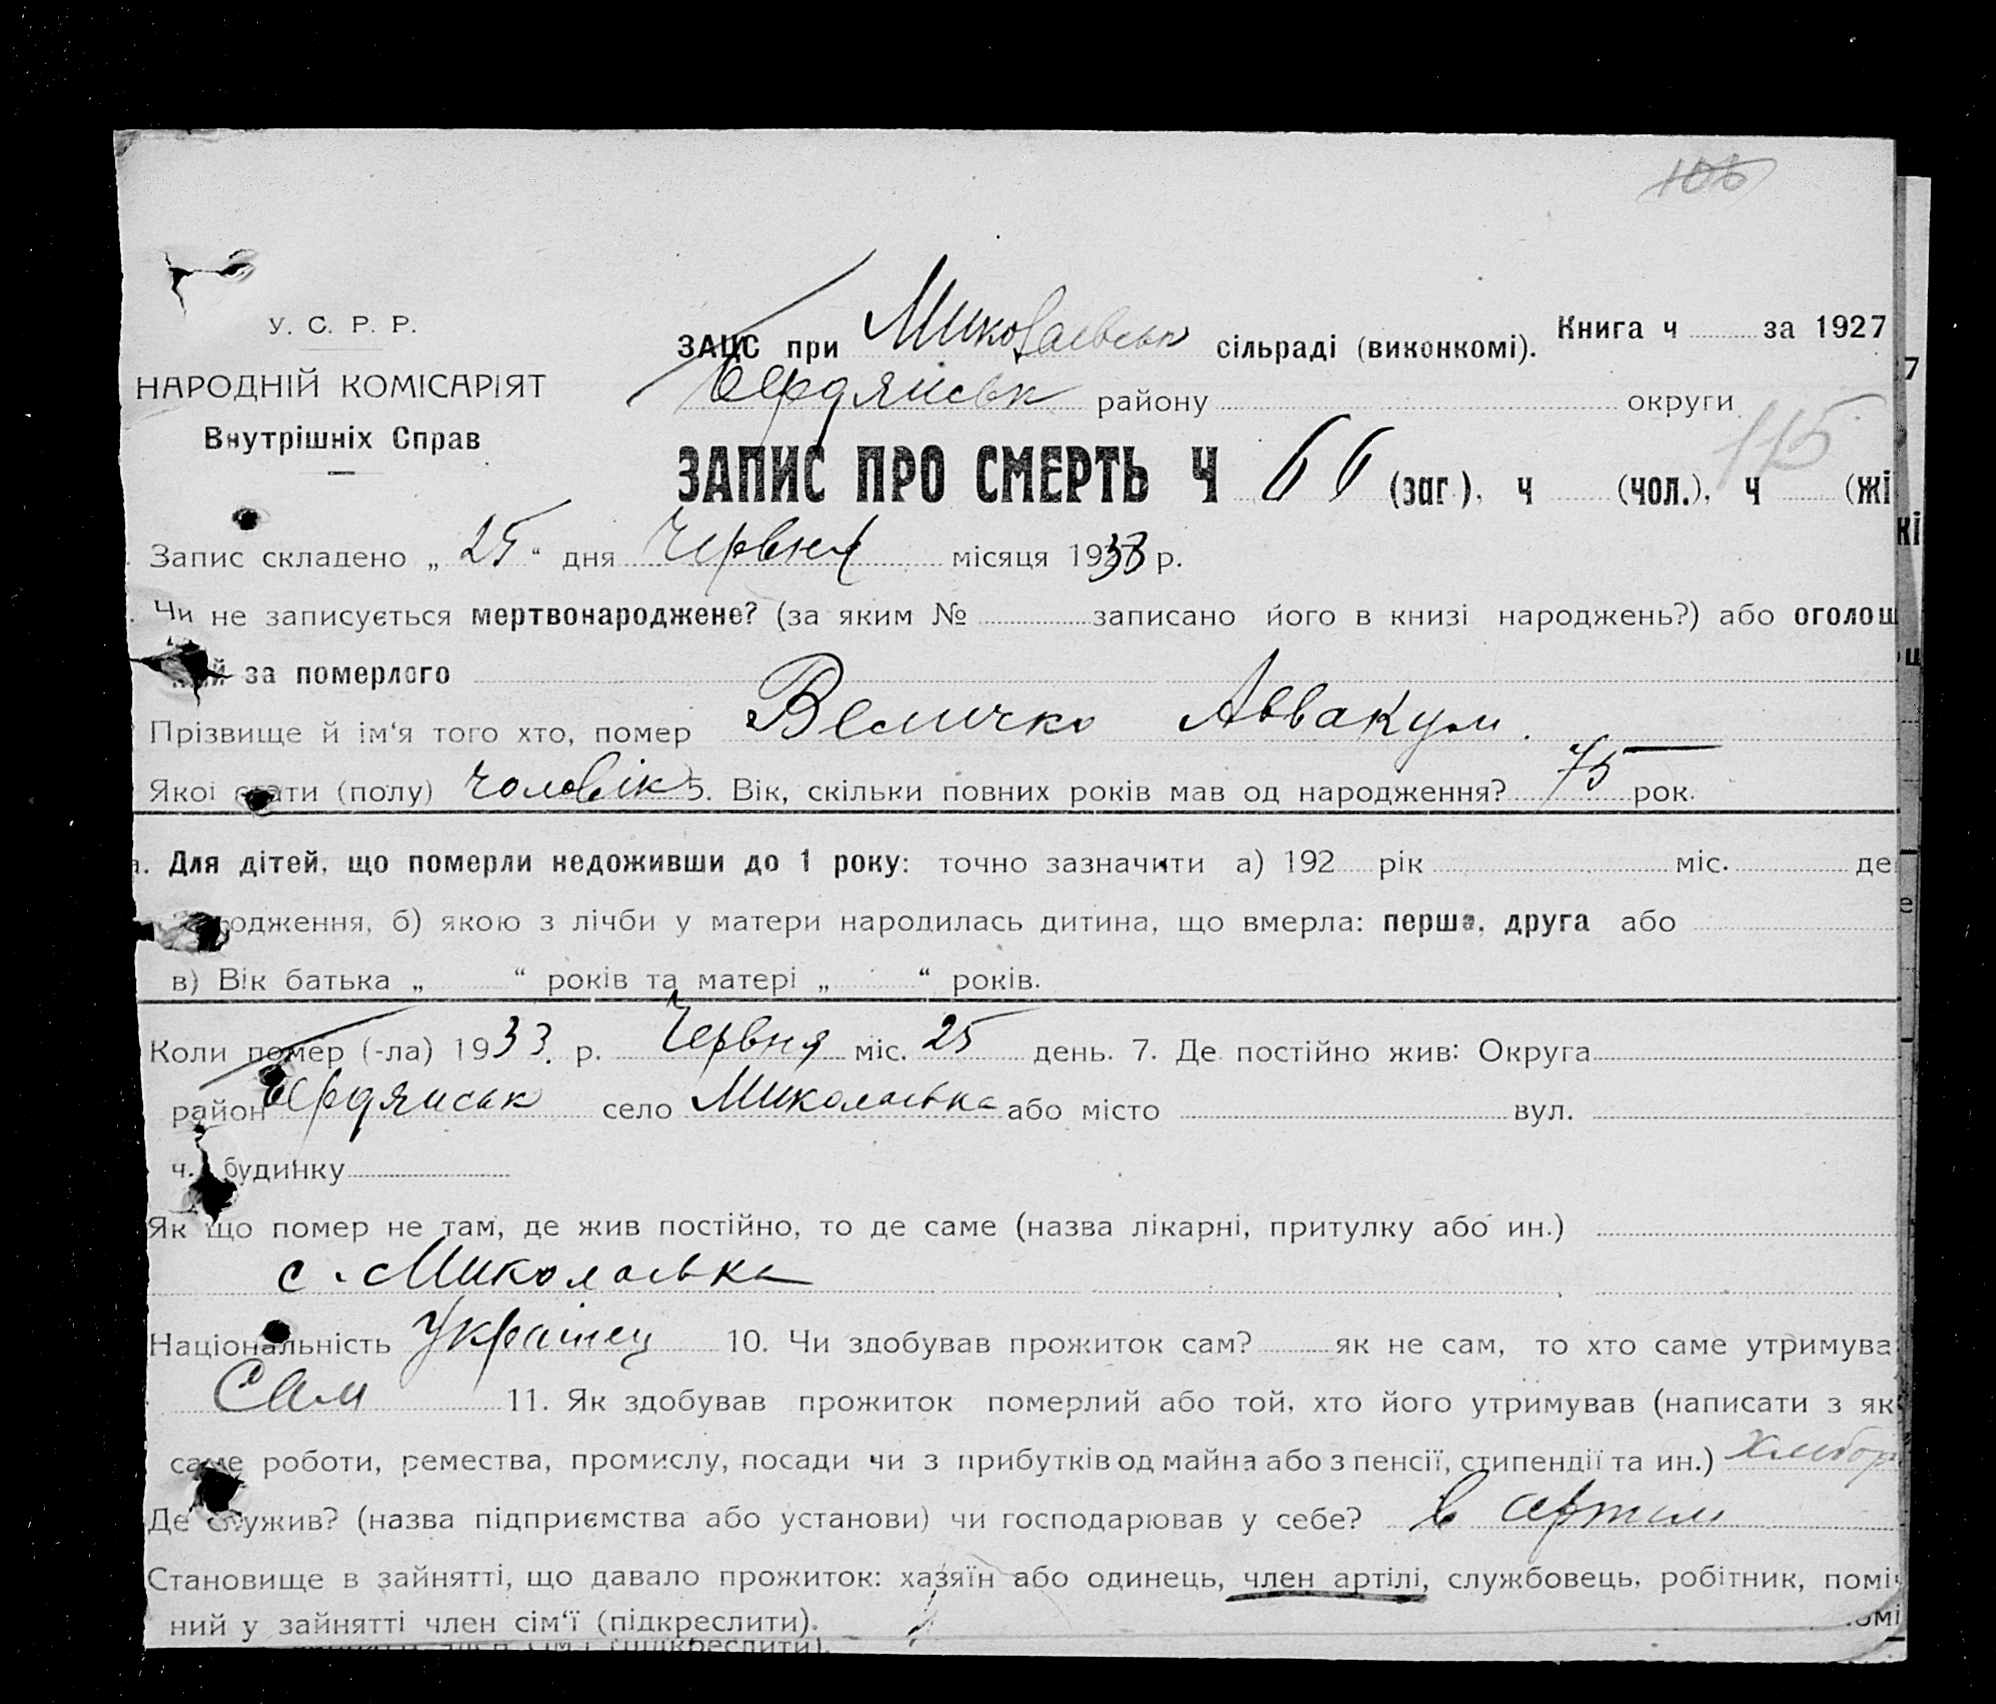 106
У. С. Р. Р.
НАРОДНІЙ КОМІСАРІЯТ
Внутрішніх Справ
ЗАЦС при Миколаевськ сільраді (виконкомі). Книга ч за 1927
Бердянськ району округи
115
ЗАПИС ПРО СМЕРТЬ Ч 66 (заг.), ч (чол.), ч (жі
Запис складено „25“ дня Червня місяця 1933 р.
Чи не записується мертвонароджене? (за яким № записано його в книзі народжень?) або оголош
за померлого
Прізвище й ім‘я того хто, помер Величко Аввакум.
Якої стати (полу) чоловік 5. Вік, скільки повних років мав од народження? 75 рок.
Для дітей, що померли недоживши до 1 року: точно зазначити а) 192 рік міс. де
одження, б) якою з лічби у матери народилась дитина, що вмерла: перша, друга або
в) Вік батька „ “ років та матері „ “ років.
Коли помер (-ла) 1933 р. Червня міс. 25 день. 7. Де постійно жив: Округа
район Бердянськ село Миколаївка або місто вул.
ч. будинку
Як що помер не там, де жив постійно, то де саме (назва лікарні, притулку або ин.)
с. Миколаївка
Національність Українец 10. Чи здобував прожиток сам? як не сам, то хто саме утримува
Сам 11. Як здобував прожиток померлий або той, хто його утримував (написати з як
саме роботи, ремества, промислу, посади чи з прибутків од майна або з пенсії, стипендії та ин.) хлибор
Де служив? (назва підприємства або установи) чи господарював у себе? в артили
Становище в зайнятті, що давало прожиток: хазяїн або одинець, член артілі, службовець, робітник, поміч
ний у зайнятті член сім‘ї (підкреслити).